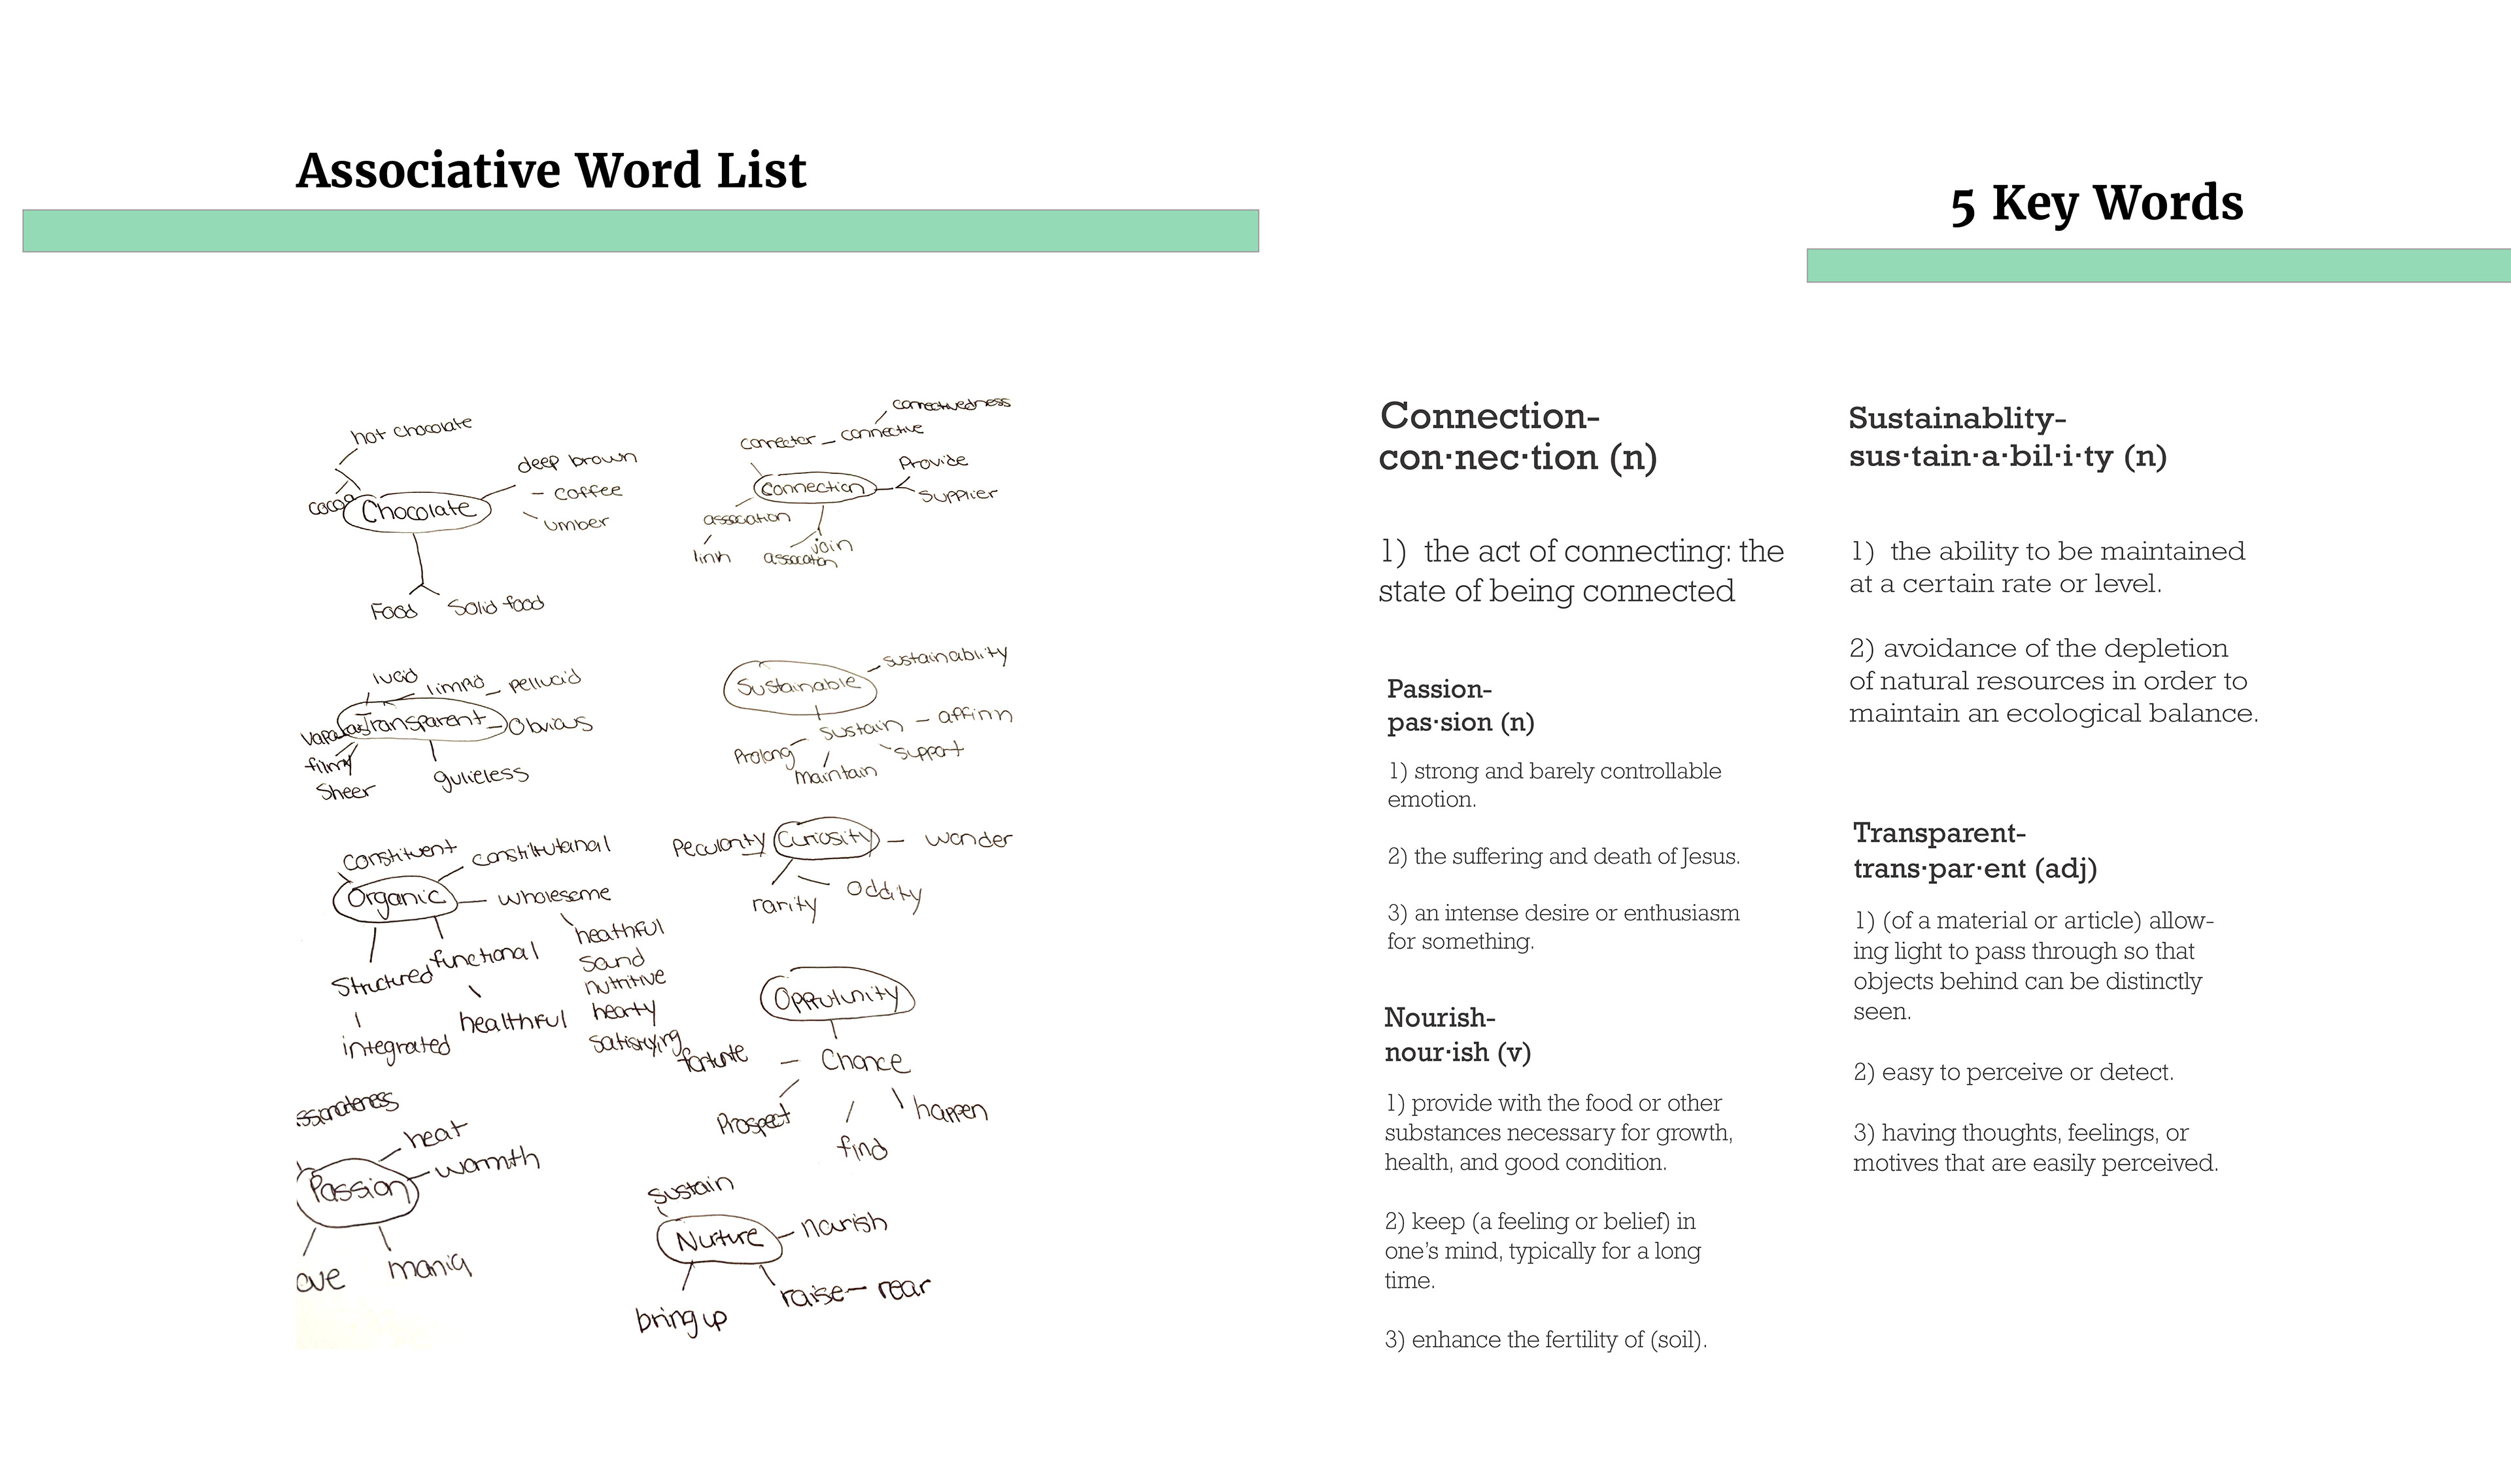 Associative Word List
hot chocolate
deep brown
coffee
umber
Chocolate
Food
Solid food
connectivedness
connector - connective
Provide
Connection
Supplier
association
link
join
association
lucid
limpid - pellucid
Transparent
Obvious
filmy
Sheer
gulieless
Sustainable
sustain
Prolong
support
maintain
constituent
Organic
wholesome
healthful
sound
nutritive
hearty
satisfying
Structured
functional
integrated
Curiosity - wonder
rarity
oddity
Chance
Prospect
happen
find
heat
warmth
Passion
ove
mania
sustain
Nurture
nourish
raise - rear
bring up
5 Key Words
Connection-
con·nec·tion (n)
1) the act of connecting: the
state of being connected
Passion-
pas·sion (n)
1) strong and barely controllable
emotion.
2) the suffering and death of Jesus.
3) an intense desire or enthusiasm
for something.
Nourish-
nour·ish (v)
1) provide with the food or other
substances necessary for growth,
health, and good condition.
2) keep (a feeling or belief) in
one's mind, typically for a long
time.
3) enhance the fertility of (soil).
Sustainablity-
sus·tain·a·bil·i·ty (n)
1) the ability to be maintained
at a certain rate or level.
2) avoidance of the depletion
of natural resources in order to
maintain an ecological balance.
Transparent-
trans·par·ent (adj)
1) (of a material or article) allow-
ing light to pass through so that
objects behind can be distinctly
seen.
2) easy to perceive or detect.
3) having thoughts, feelings, or
motives that are easily perceived.